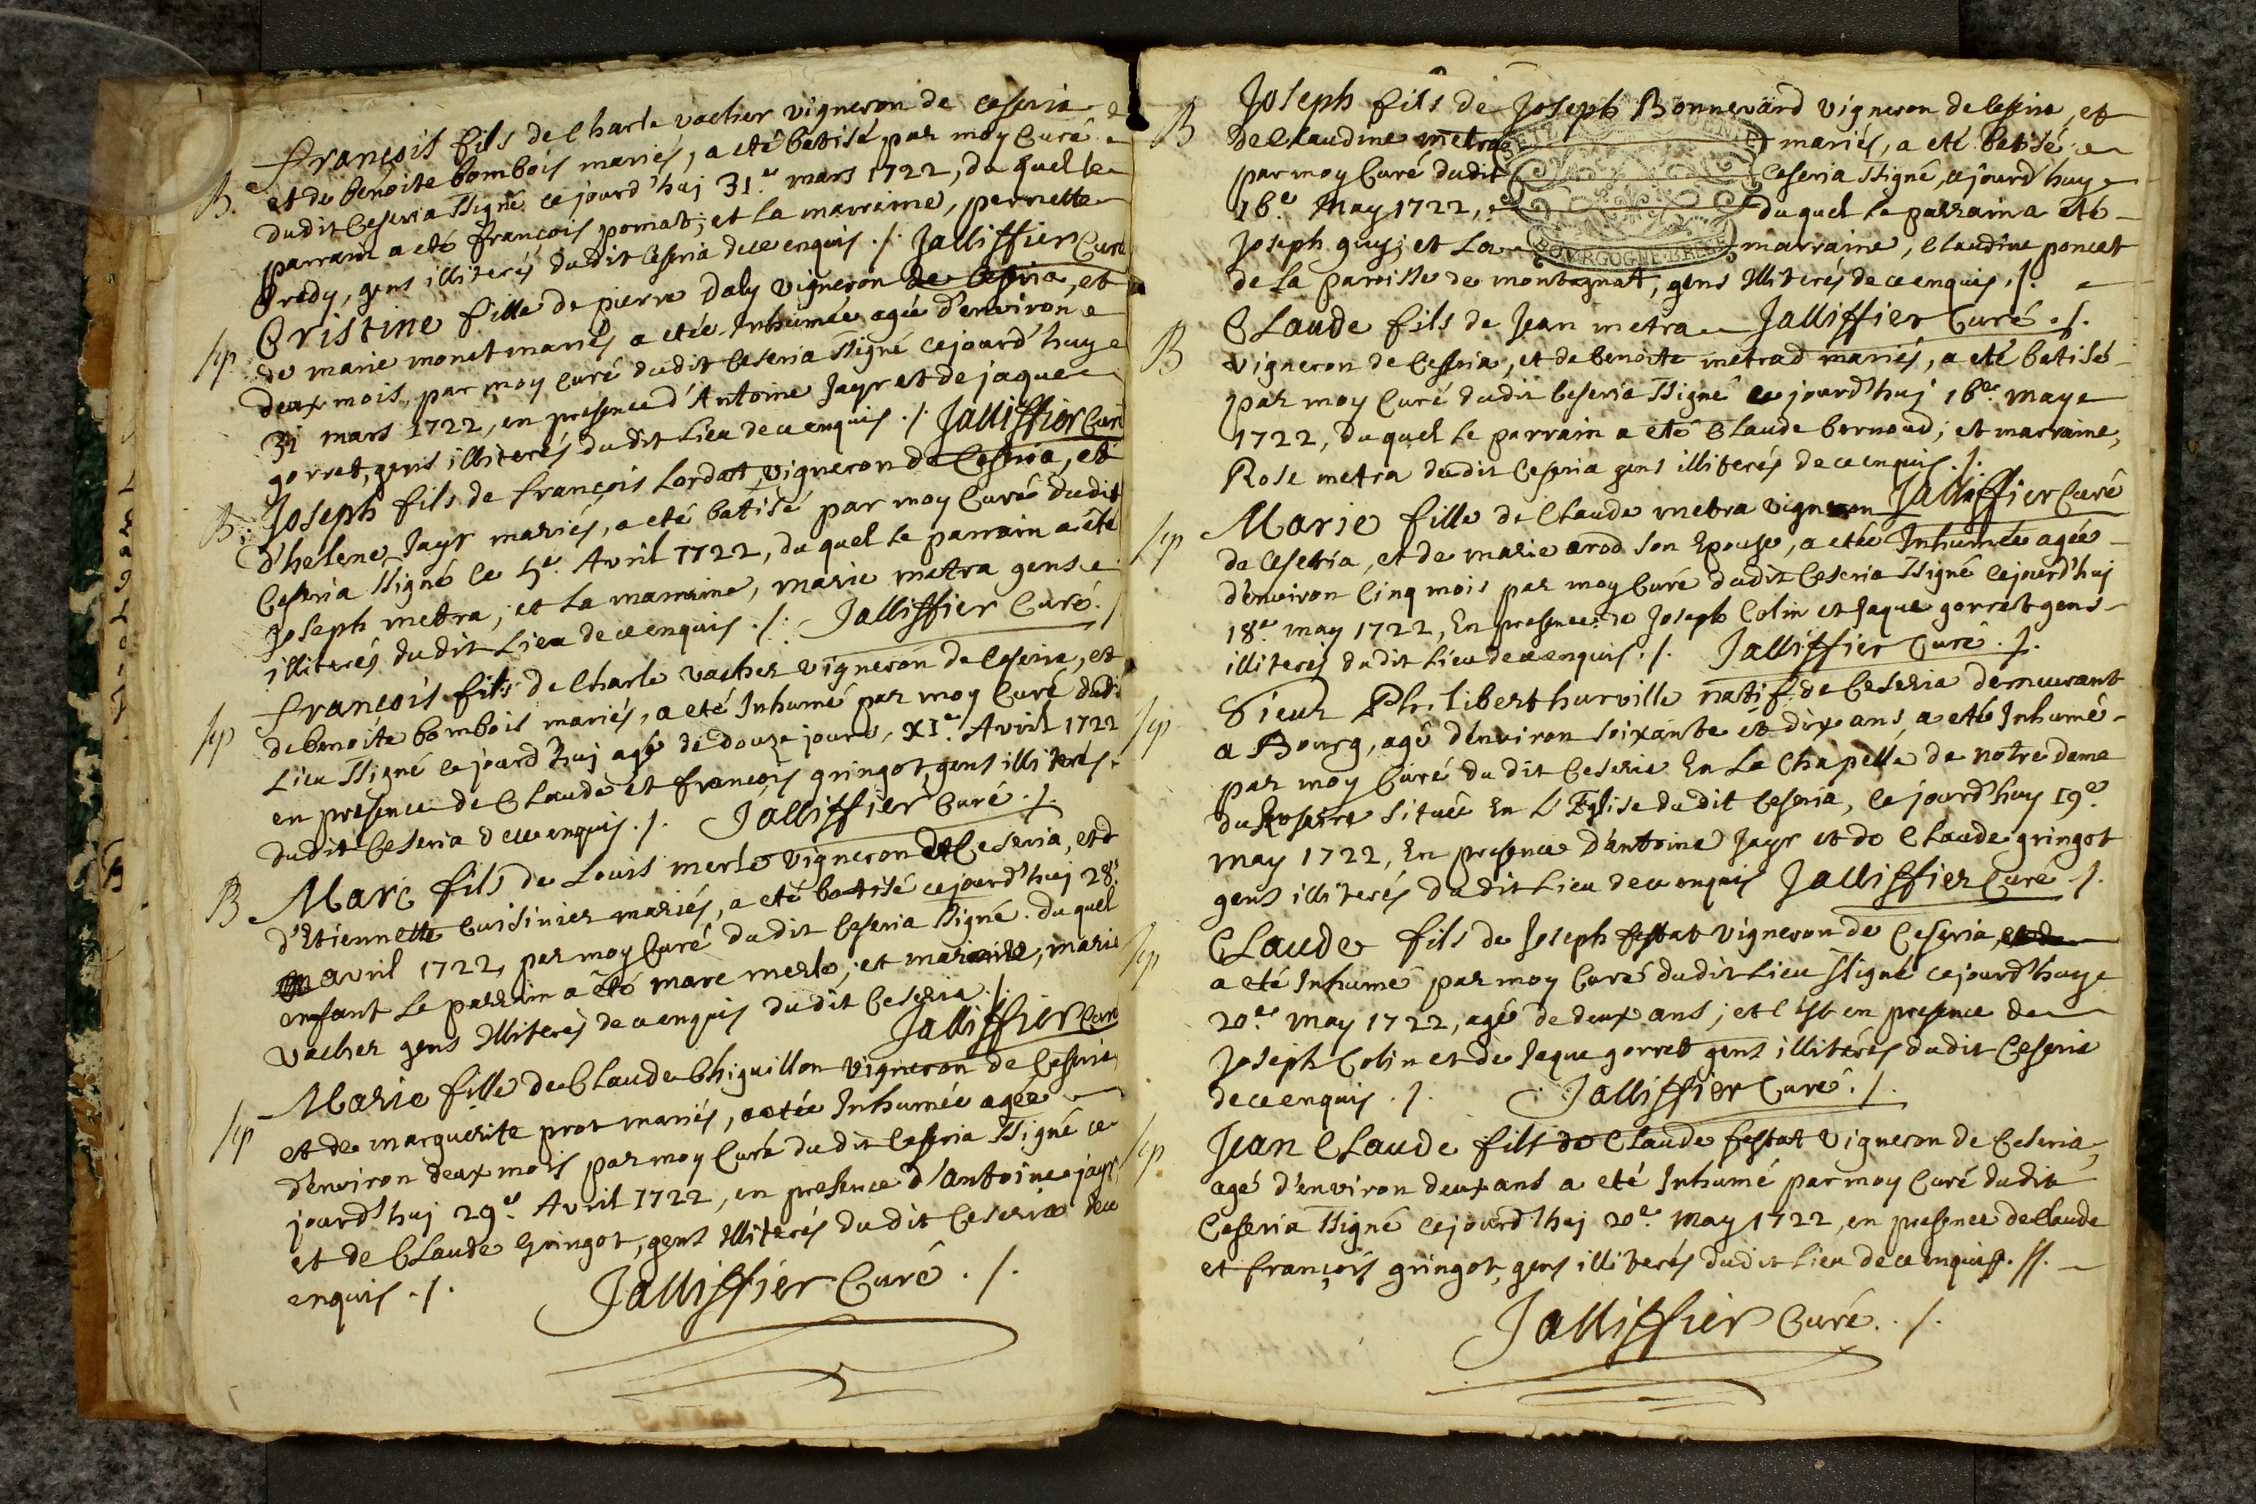 B. françois fils de Charle vacher vigneron de Ceseria
et de benoite bombois mariés, a eté batisé par moy Curé
dudit Ceseria ssigné cejourd'huj 31.e mars 1722, du quel le
parrain a eté françois pomat; et la marraine, pernette
Bredy, gens illiterés dudit Ceseria dece enquis ./. Jalliffier Curé
sep Cristine fille de pierre Daly vigneron de Ceseria, et
de marie monet mariés a etée Inhumée agée d'environ
deux mois, par moy Curé dudit Ceseria ssigné cejourd'huy
31 mars 1722, en presence d'Antoine Jayr et de jaque
gorret, gens illiterés dudit Lieu dece enquis ./ Jalliffier Curé
B. Joseph fils de françois Lordat, vigneron de Ceseria, et
d'helene Jayr mariés, a eté batisé par moy Curé dudit
Ceseria ssigné le 5.e Avril 1722, du quel le parrain a été
Joseph metra; et la marraine, marie metra gens
illiterés dudit Lieu dece enquis ./. Jalliffier Curé ./
sep françois fils de Charle vacher vigneron de Ceseria, et
de benoite bombois mariés, a eté Inhumé par moy Curé dudit
Lieu ssigné cejourd'huj agé de douze jours, XI.e Avril 1722
en presence de Claude et françois gringot, gens illiterés
dudit Ceseria dece enquis ./. Jalliffier Curé ./.
B Marc fils de Louis merle vigneron de Ceseria, et
d'Etiennette Cuisinier mariés, a eté batisé cejourd'huj 28.e
avril 1722, par moy Curé dudit Ceseria ssigné. du quel
enfant Le parrain a eté marc merle; et maraine, marie
vacher gens Illiterés dece enquis dudit Ceseria ./.
Jalliffier Curé
sep Marie fille de Claude Chiguillon vigneron de Ceseria
et de marguerite prot mariés, a etée Inhumée agée
d'environ deux mois par moy Curé dudit Ceseria ssigné ce
jourd'huj 29.e Avril 1722, en presence d'Antoine jayr
et de Claude Gringot, gens Illiterés dudit Ceseria dece
enquis ./. Jalliffier Curé ./.
B Joseph fils de Joseph Bonnevard vigneron de Ceseria, et
de Claudine metra mariés, a eté batisé
par moy Curé dudit Ceseria ssigné, cejourd'huy
16.e May 1722, du quel le parrain a eté
Joseph guy; et La marraine, Claudine poncet
de la paroisse de montagnat, gens Illiterés dece enquis ./.
B Claude fils de Jean metra Jalliffier Curé ./.
vigneron de Ceseria, et de benoite metrad mariés, a eté batisé
par moy Curé dudit Ceseria ssigné cejourd'huj 16.e may
1722, du quel le parrain a eté Claude bernoud; et marraine,
Rose metra dudit Ceseria gens illiterés dece enquis ./.
sep Marie fille de Claude metra vigneron Jalliffier Curé
de Ceseria, et de marie arod son Epouse, a etée Inhumée agée
d'environ Cinq mois par moy Curé dudit Ceseria ssigné Cejourd'huj
18.e may 1722, En presence de Joseph Colin et Jaque gorret gens
illiterés dudit Lieu dece enquis ./. Jalliffier Curé ./.
sep Sieur Philibert hurville natif de Ceseria demeurant
a Bourg, agé d'environ soixante et dix ans, a eté Inhumé
par moy Curé dudit Ceseria En La Chapelle de notre dame
du Rosaire située En L'Eglise dudit Ceseria, cejourd'huy 19.e
may 1722, En presence d'Antoine Jayr et de Claude gringot
gens illiterés dudit Lieu dece enquis Jalliffier Curé ./.
sep Claude fils de Joseph festat vigneron de Ceseria
a eté Inhumé par moy Curé dudit Lieu ssigné cejourd'huy
20.e may 1722, agé de deux ans; et C'est en presence de
Joseph Colin et de Jaque gorret gens illiterés dudit Ceseria
dece enquis ./. Jalliffier Curé ./.
sep Jean Claude fils de Claude festat vigneron de Ceseria,
agé d'environ deux ans a eté Inhumé par moy Curé dudit
Ceseria ssigné Cejourd'huj 20.e May 1722, en presence de Claude
et françois gringot, gens illiterés dudit Lieu dece enquis ./.
Jalliffier Curé ./.